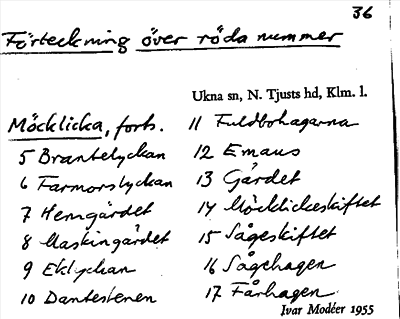 36
Förteckning över röda nummer
Ukna sn, N. Tjusts hd, Klm. l.
Möcklicka, forts.
5 Brantelyckan
6 Farmorslyckan
7 Hemgärdet
8 Maskingärdet
9 Eklyckan
10 Dantestenen
11 Fuldbohagarna
12 Emaus
13 Gärdet
14 Möcklickeskiftet
15 Sågeskiftet
16 Sågehagen
17 Fårhagen
Ivar Modéer 1955